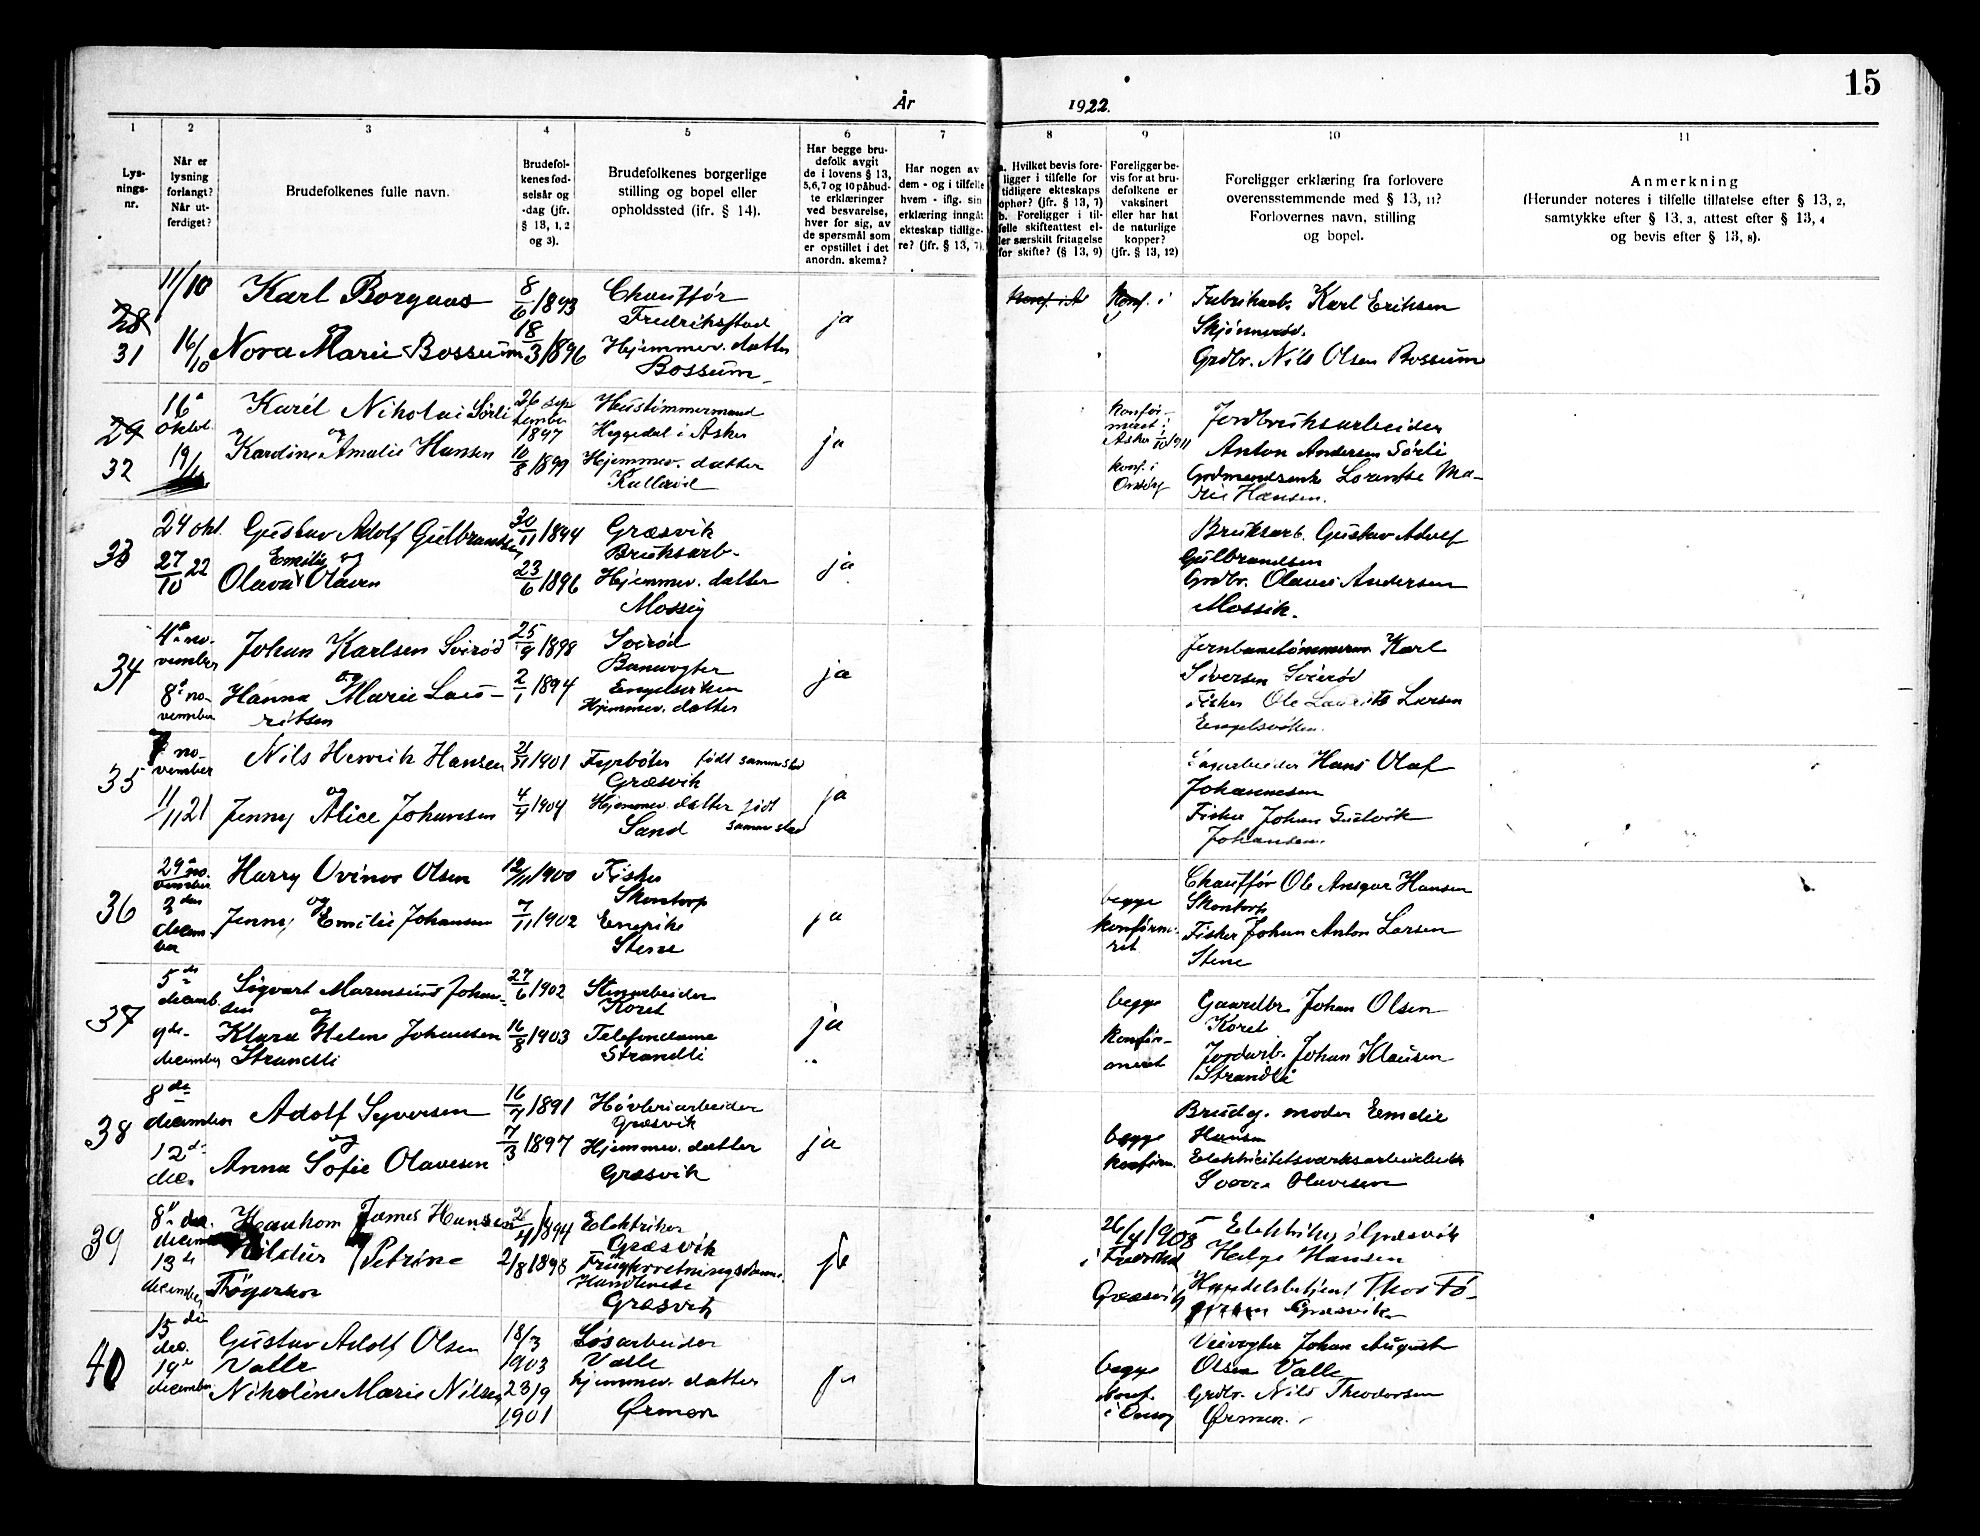 15
År 1922.
1 2 3 4 5 6 7 8 9 10 11
Lys-
nings-
nr.
Når er
lysning
forlangt?
Når ut-
ferdiget?
Brudefolkenes fulle navn.
Brudefol-
kenes fød-
selsår og
-dag (jfr.
§ 13, 1, 2
og 3).
Brudefolkenes borgerlige
stilling og bopel eller
opholdssted (ifr. § 14).
Har begge bru-
defolk avgit
de i lovens § 13,
5, 6, 7 og 10 påbud-
te erklæringer
ved besvarelse,
hver for sig, av
de spørsmål som
er opstillet i det
anordn. skema?
Har nogen av
dem - og i tilfelle
hvem - iflg. sin
erklæring inngåt
ekteskap tidlige-
re? (jfr. § 13, 7).
a. Hvilket bevis fore-
ligger i tilfelle for
tidligere ekteskaps
ophør? (jfr. § 13, 7)
b. Foreligger i til-
felle skifteattest el-
ler særskilt fritagelse
for skifte? (§ 13, 9)
Foreligger be-
vis for at bru-
defolkene er
vaksinert
eller har hat
de naturlige
kopper?
(jfr. § 13, 12)
Foreligger erklæring fra forlovere
overensstemmende med § 13, 11?
Forlovernes navn, stilling
og bopel.
Anmerkning
(Herunder noteres i tilfelle tillatelse efter § 13, 2,
samtykke efter § 13, 3, attest efter § 13, 4
og bevis efter § 13, 8).
28
31
11/10
16/10
Karl Borgaas
og
Nora Marie Bossum
8/6 1893
18/3 1896
Chauffør
Fredrikstad
Hjemmev. datter
Bossum
ja
Konf. i
Konf. i
Fabrikarb. Karl Eriksen
Grdbr. Nils Olsen Bossum
29
32
16de
oktob.
19/10
Karel Nikolai Sørli
og
Kardine Amalie Hansen
26 sep
tember
1897
10/8 1899
Hustømmermand
Heggedal i Asker
Hjemmev. datter
Kallerød
ja
konfir-
meret i
Asker 1/10 1911
konf. i
Onsøy
Jordbruksarbeider
Anton Andersen Sørli
Grdmandsenke Lorentse Ma-
rie Hansen.
33
24 okt.
27/10 22
Gustav Adolf Gulbrandsen
Emilie og
Olava Olsen
30/11 1894
23/6 1896
Græsvik
Bruksarb.
Hjemmev. datter
Mossig
ja
Bruksarb. Gustav Adolf
Gulbrandsen
Grdbr. Olaus Andersen
Mossik.
34
4de no-
vember
8de no-
vember
Johan Karlsen Soirød
og
Hanna Marie Lau-
ritsen
25/9 1898
2/1 1894
Soirød
Banevogter
Engelsviken
Hjemmev. datter
ja
Jernbanetømmerm Karl
Siversen Soirød
Fisker Ole Laurits Larsen
Engelsviken.
35
7 no-
vember
11/11 21
Nils Henrik Hansen
og
Jenny Alice Johansen
21/11 1901
4/4 1904
Fyrbøter født sammested
Græsvik
Hjemmev. datter født
Sand sammested
ja
Hans Olaf
Johannesen
Fisker Johan Gudvik
Johansen.
36
29de no.
vember
2den
decem-
ber
Harry Ovinor Olsen
og
Jenny Emilie Johansen
12/11 1900
7/11 1902
Fisker
Skontorp
Enepike
Stene
ja
begge
konfirme-
ret
Chauffør Ole Ansgar Hansen
Skontorp
Fisker Johan Anton Larsen
Stene
37
5de
decemb.
9de
december
Sigvart Marensius Johan-
sen
og
Klara Helene Johansen
Strandli
27/6 1902
16/8 1903
Stenarbeider
Koret
Telefondame
Strandli
ja
begge
konfir-
meret
Gaardbr. Johan Olsen
Koret
Jordarb. Johan Klausen
Strandli
38
8de
december
12de
dec.
Adolf Syversen
og
Anna Sofie Olavesen
16/7 1891
7/3 1897
Høvleriarbeider
Græsvik
Hjemmev. datter
Græsvik
ja
begge
konfirm.
Brudg. moder Emelie
Hansen
Elektricitetsverksarbeider
Olavesen
39
8de dec.
december
13de
december
Haakon James Hansen
Petrine
2/8 1898
Elektriker
Græsvik
Græsvik
ja
26/4 1908
i Fredrikstad
Græsvik
Elektriker i Græsvik
Helge Hansen
Handelsbetjent Thor Fø-
Græsvik
40
15de
dec.
19de
december
Gustav Adolf Olsen
Valle
Nikoline Marie Nilsen
18/3
1903
23/9
1901
Løsarbeider
Valle
hjemmev. datter
Ørmen
ja
begge
konf.
i Onsøy
Veivogter Johan August
Olsen Valle
Grdbr. Nils Theodorsen
Ørmen.